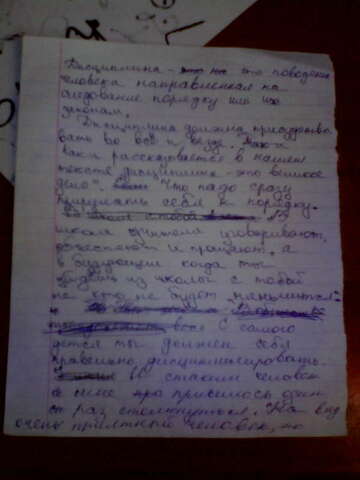 Дисциплина - это поведение
человека направленная на
следование порядку или их
законам.
Дисциплина должна присудствво
вать во всё и везде. Как и
как и рассказывается в нашем
тексте дисциплина - это великое
дело". Что надо сразу
приучать себя к порядку.
В
школе учителя уговаривают,
и прощают, а
в будующем когда ты
выйдешь из школы с тобой
не кто не будет нянчится
с самого
детства ты должен себя
правильно дисциплинировать.
С таким человек
мне пришлось один
раз столкнуться. На вид
очень приятный человек, но